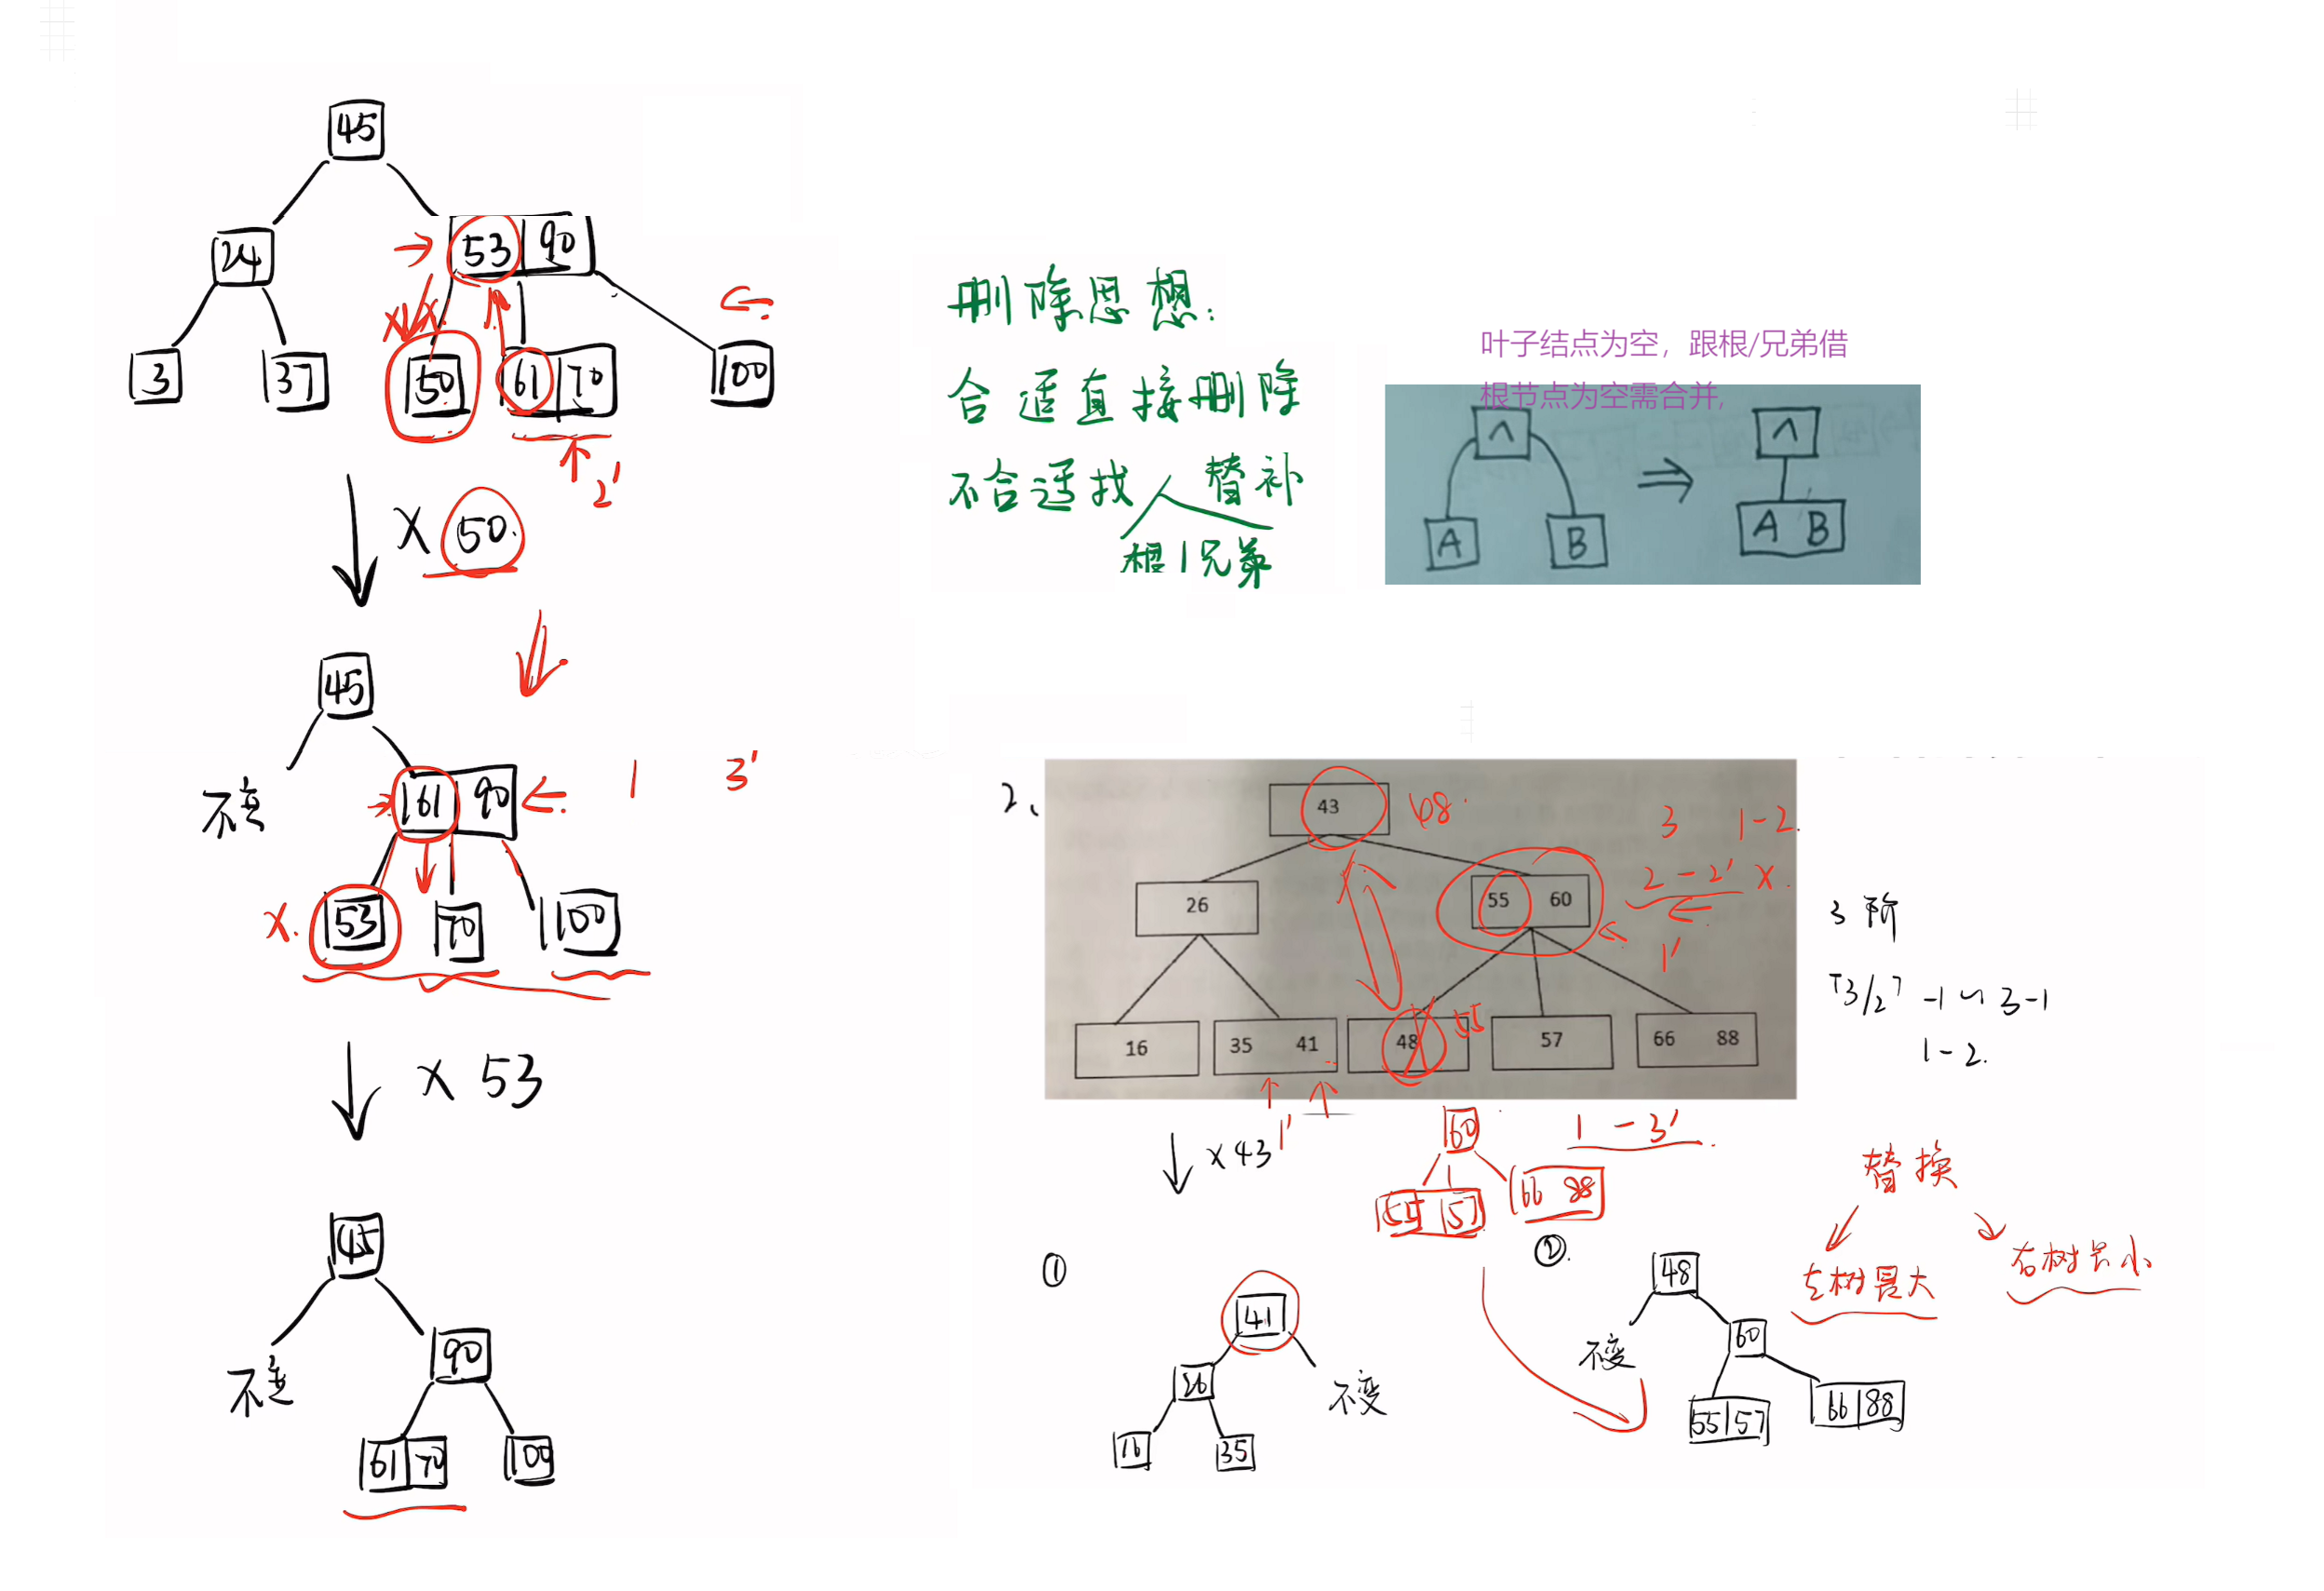 45
24
53 90
3
37
50
61 70
100
2'
× 50
45
不变
61 90
1 3'
×
53
70
100
× 53
45
不变
90
61 70
100
删除思想:
合适直接删除
不合适找人替补
根/兄弟
叶子结点为空，跟根/兄弟借
根节点为空需合并,
A
B
A B
2、
43
48
3 1-2
26
55 60
2-2' ×
1'
16
35 41
48
55
57
66 88
1'
3阶
⌈3/2⌉-1~3-1
1-2
× 43
60
1-3'
55 57
66 88
替换
左树最大
右树最小
①
41
26
不变
16
35
②
48
不变
60
55 57
66 88